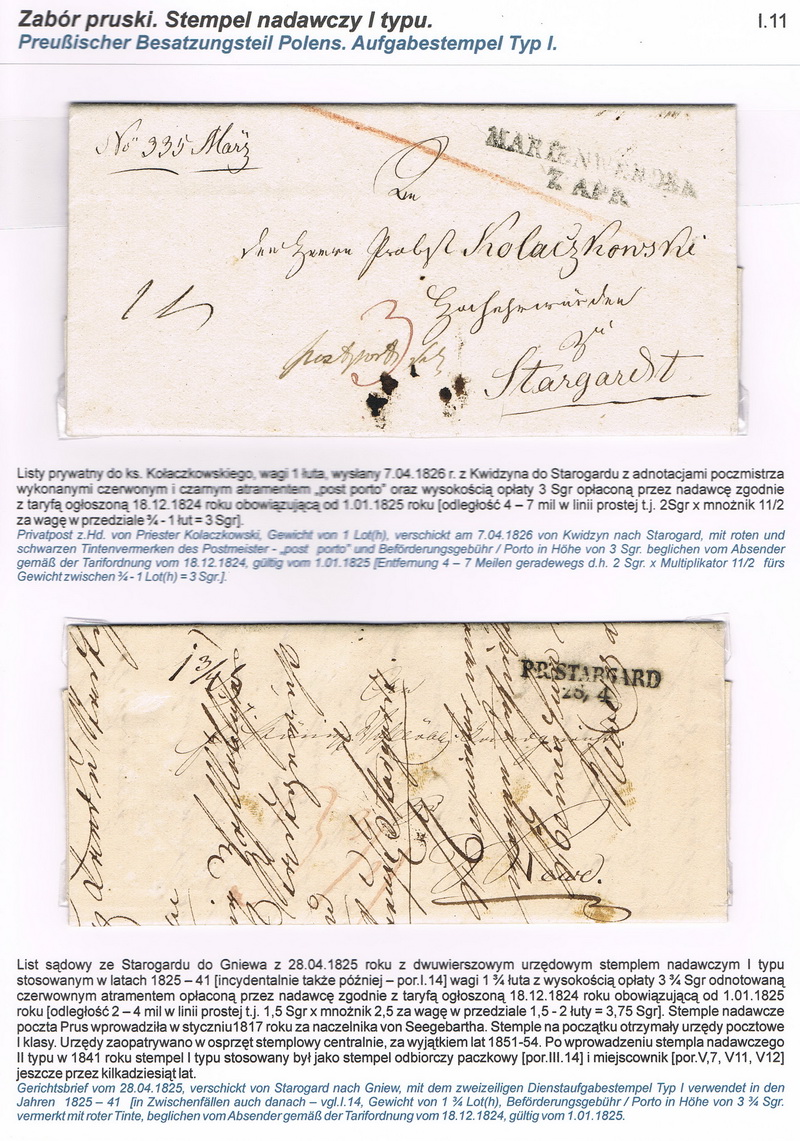 Zabór pruski. Stempel nadawczy I typu.
I.11
Preußischer Besatzungsteil Polens. Aufgabestempel Typ I.
No 335 März
MARIENWERDER
7 APR
An
den Herrn Probst Kolaczkowski
Hochehrwürden
zu
Stargardt
3
Listy prywatny do ks. Kołaczkowskiego, wagi 1 łuta, wysłany 7.04.1826 r. z Kwidzyna do Starogardu z adnotacjami poczmistrza
wykonanymi czerwonym i czarnym atramentem „post porto" oraz wysokością opłaty 3 Sgr opłaconą przez nadawcę zgodnie
z taryfą ogłoszoną 18.12.1824 roku obowiązującą od 1.01.1825 roku [odległość 4 – 7 mil w linii prostej t.j. 2Sgr x mnożnik 11/2
za wagę w przedziale ¾ - 1 łut = 3 Sgr].
Privatpost z.Hd. von Priester Kolaczkowski, Gewicht von 1 Lot(h), verschickt am 7.04.1826 von Kwidzyn nach Starogard, mit roten und
schwarzen Tintenvermerken des Postmeister - „post porto" und Beförderungsgebühr / Porto in Höhe von 3 Sgr. beglichen vom Absender
gemäß der Tarifordnung vom 18.12.1824, gültig vom 1.01.1825 [Entfernung 4 – 7 Meilen geradewegs d.h. 2 Sgr. x Multiplikator 11/2 fürs
Gewicht zwischen ¾ - 1 Lot(h) = 3 Sgr.].
1 3/4
PR.STARGARD
28, 4
List sądowy ze Starogardu do Gniewa z 28.04.1825 roku z dwuwierszowym urzędowym stemplem nadawczym I typu
stosowanym w latach 1825 – 41 [incydentalnie także później – por.I.14] wagi 1 ¾ łuta z wysokością opłaty 3 ¾ Sgr odnotowaną
czerwownym atramentem opłaconą przez nadawcę zgodnie z taryfą ogłoszoną 18.12.1824 roku obowiązującą od 1.01.1825
roku [odległość 2 – 4 mil w linii prostej t.j. 1,5 Sgr x mnożnik 2,5 za wagę w przedziale 1,5 - 2 łuty = 3,75 Sgr]. Stemple nadawcze
poczta Prus wprowadziła w styczniu1817 roku za naczelnika von Seegebartha. Stemple na początku otrzymały urzędy pocztowe
I klasy. Urzędy zaopatrywano w osprzęt stemplowy centralnie, za wyjątkiem lat 1851-54. Po wprowadzeniu stempla nadawczego
II typu w 1841 roku stempel I typu stosowany był jako stempel odbiorczy paczkowy [por.III.14] i miejscownik [por.V,7, V11, V12]
jeszcze przez kilkadziesiąt lat.
Gerichtsbrief vom 28.04.1825, verschickt von Starogard nach Gniew, mit dem zweizeiligen Dienstaufgabestempel Typ I verwendet in den
Jahren 1825 – 41 [in Zwischenfällen auch danach – vgl.I.14, Gewicht von 1 ¾ Lot(h), Beförderungsgebühr / Porto in Höhe von 3 ¾ Sgr.
vermerkt mit roter Tinte, beglichen vom Absender gemäß der Tarifordnung vom 18.12.1824, gültig vom 1.01.1825.